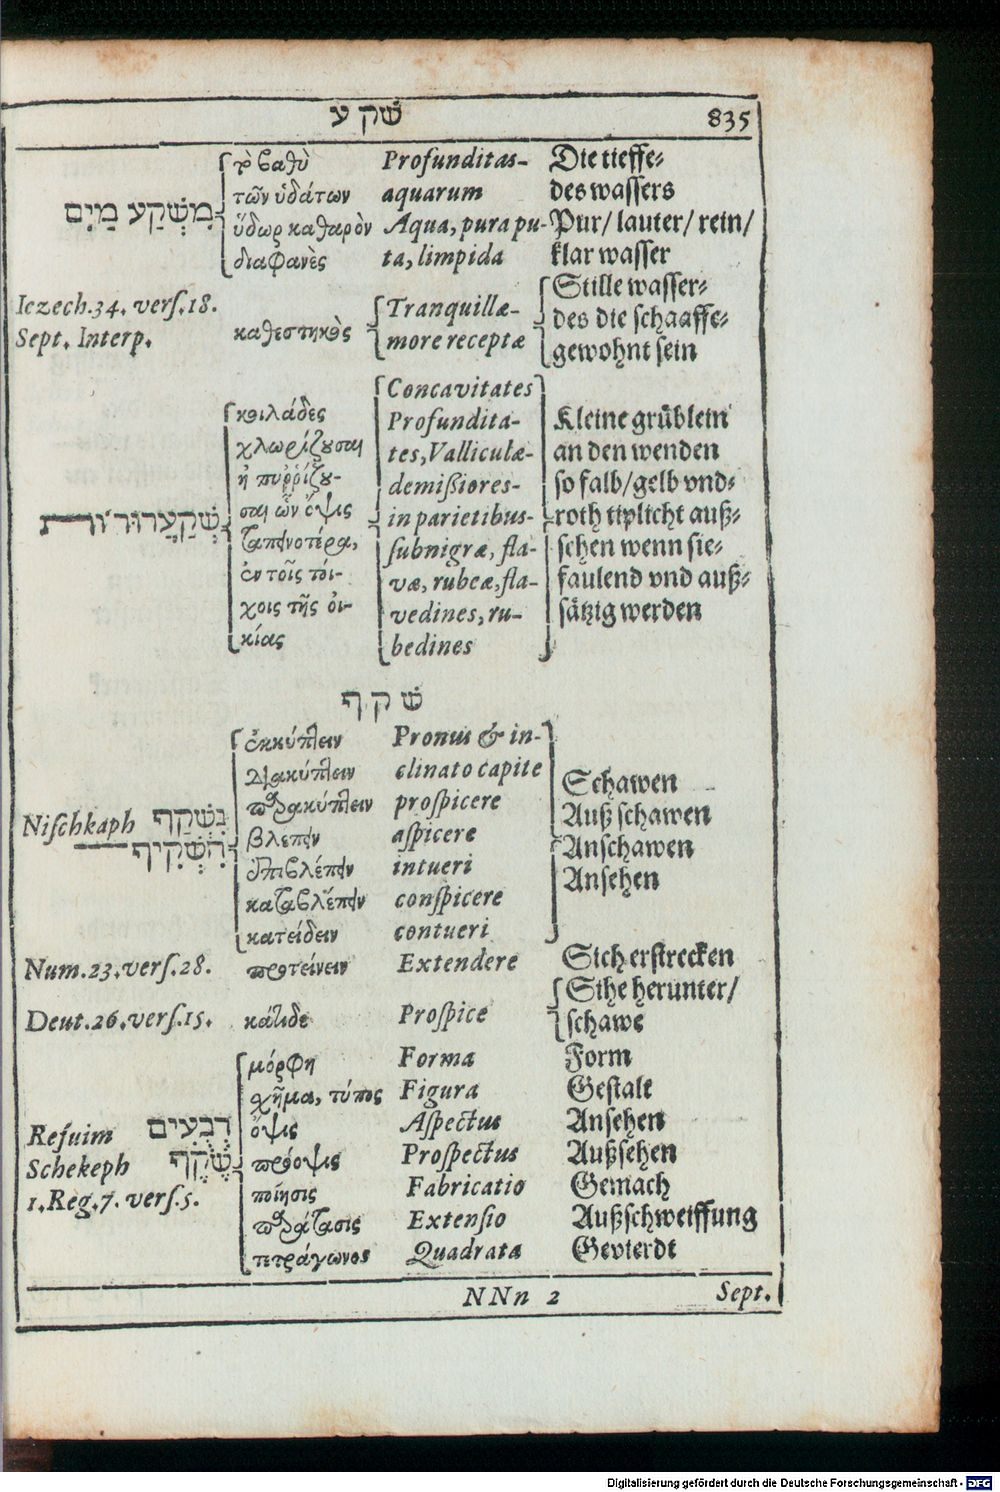 שׁקע 835
מִשְׁקַע מַיִם
τὸ βαθὺ
τῶν ὑδάτων
ὕδωρ καθαρὸν
διαφανὲς
Profunditas-
aquarum
Aqua, pura pu-
ta, limpida
Die tieffe-
des wassers
Pur/ lauter/ rein/
klar wasser
Iezech. 34. vers. 18.
Sept. Interp.
καθεστηκὸς
Tranquillæ-
more receptæ
Stille wasser-
des die schaaffe-
gewohnt sein
κοιλάδες
χλωρίζουσαι
ἢ πυῤῥίζου-
σαι ὧν ὄψις
ταπεινοτέρα,
ἐν τοῖς τοί-
χοις τῆς οἰ-
κίας
Concavitates
Profundita-
tes, Valliculæ-
demißiores-
in parietibus-
subnigræ, fla-
væ, rubeæ, fla-
vedines, ru-
bedines
Kleine grüblein
an den wenden
so falb/ gelb vnd-
roth tiplicht auß-
schen wenn sie-
faulend vnd auß-
sätzig werden
שׁקף
Nischkaph נִשְׁקַף
הִשְׁקִיף
ἐκκύπτειν
διακύπτειν
παρακύπτειν
βλέπειν
ἐπιβλέπειν
καταβλέπειν
κατείδειν
Pronus & in-
clinato capite
prospicere
aspicere
intueri
conspicere
contueri
Schawen
Auß schawen
Anschawen
Ansehen
Num. 23. vers. 28. προτείνειν Extendere Sich erstrecken
Deut. 26. vers. 15. κάτιδε Prospice
Sihe herunter/
schawe
Refuim רְבִעִים
Schekeph שֶׁקֶף
1. Reg. 7. vers. 5.
μόρφη Forma Form
χῆμα, τύπος Figura Gestalt
ὄψις Aspectus Ansehen
πρόοψις Prospectus Außsehen
ποίησις Fabricatio Gemach
παράτασις Extensio Außschweiffung
τετράγωνος Quadrata Gevierdt
NNn 2 Sept.
Digitalisierung gefördert durch die Deutsche Forschungsgemeinschaft - DFG